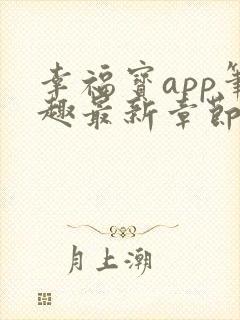 幸福宝app笔
趣最新章节
月上潮